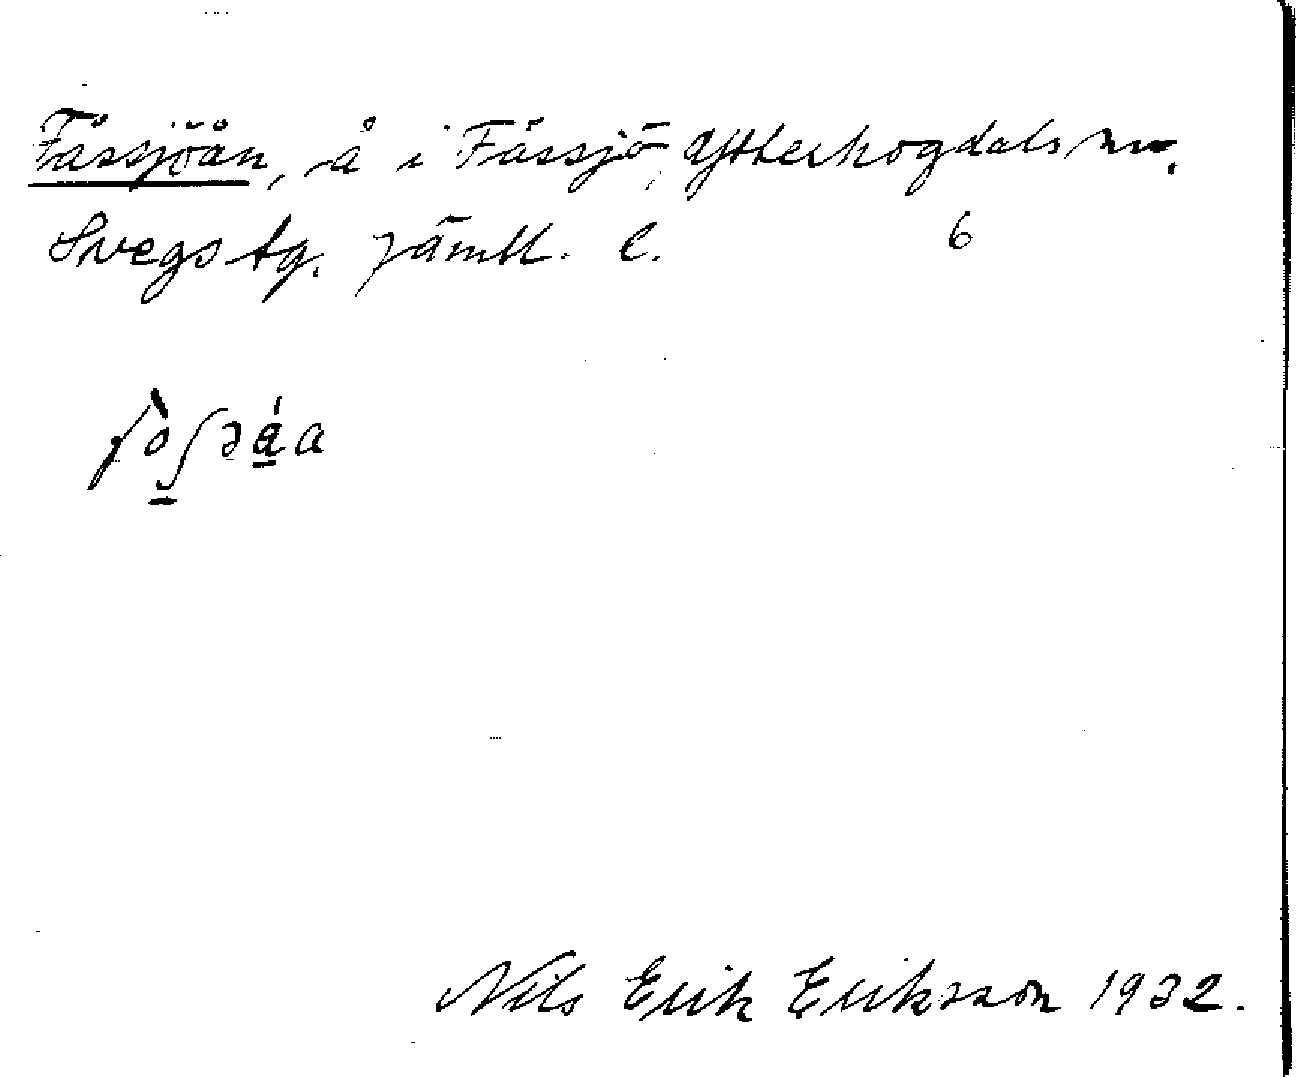 Fåssjöån, å i Fåssjö, Ytterhogdals sn.
Svegs tg. Jämtl. l. 6
Nils Erik Eriksson 1932.